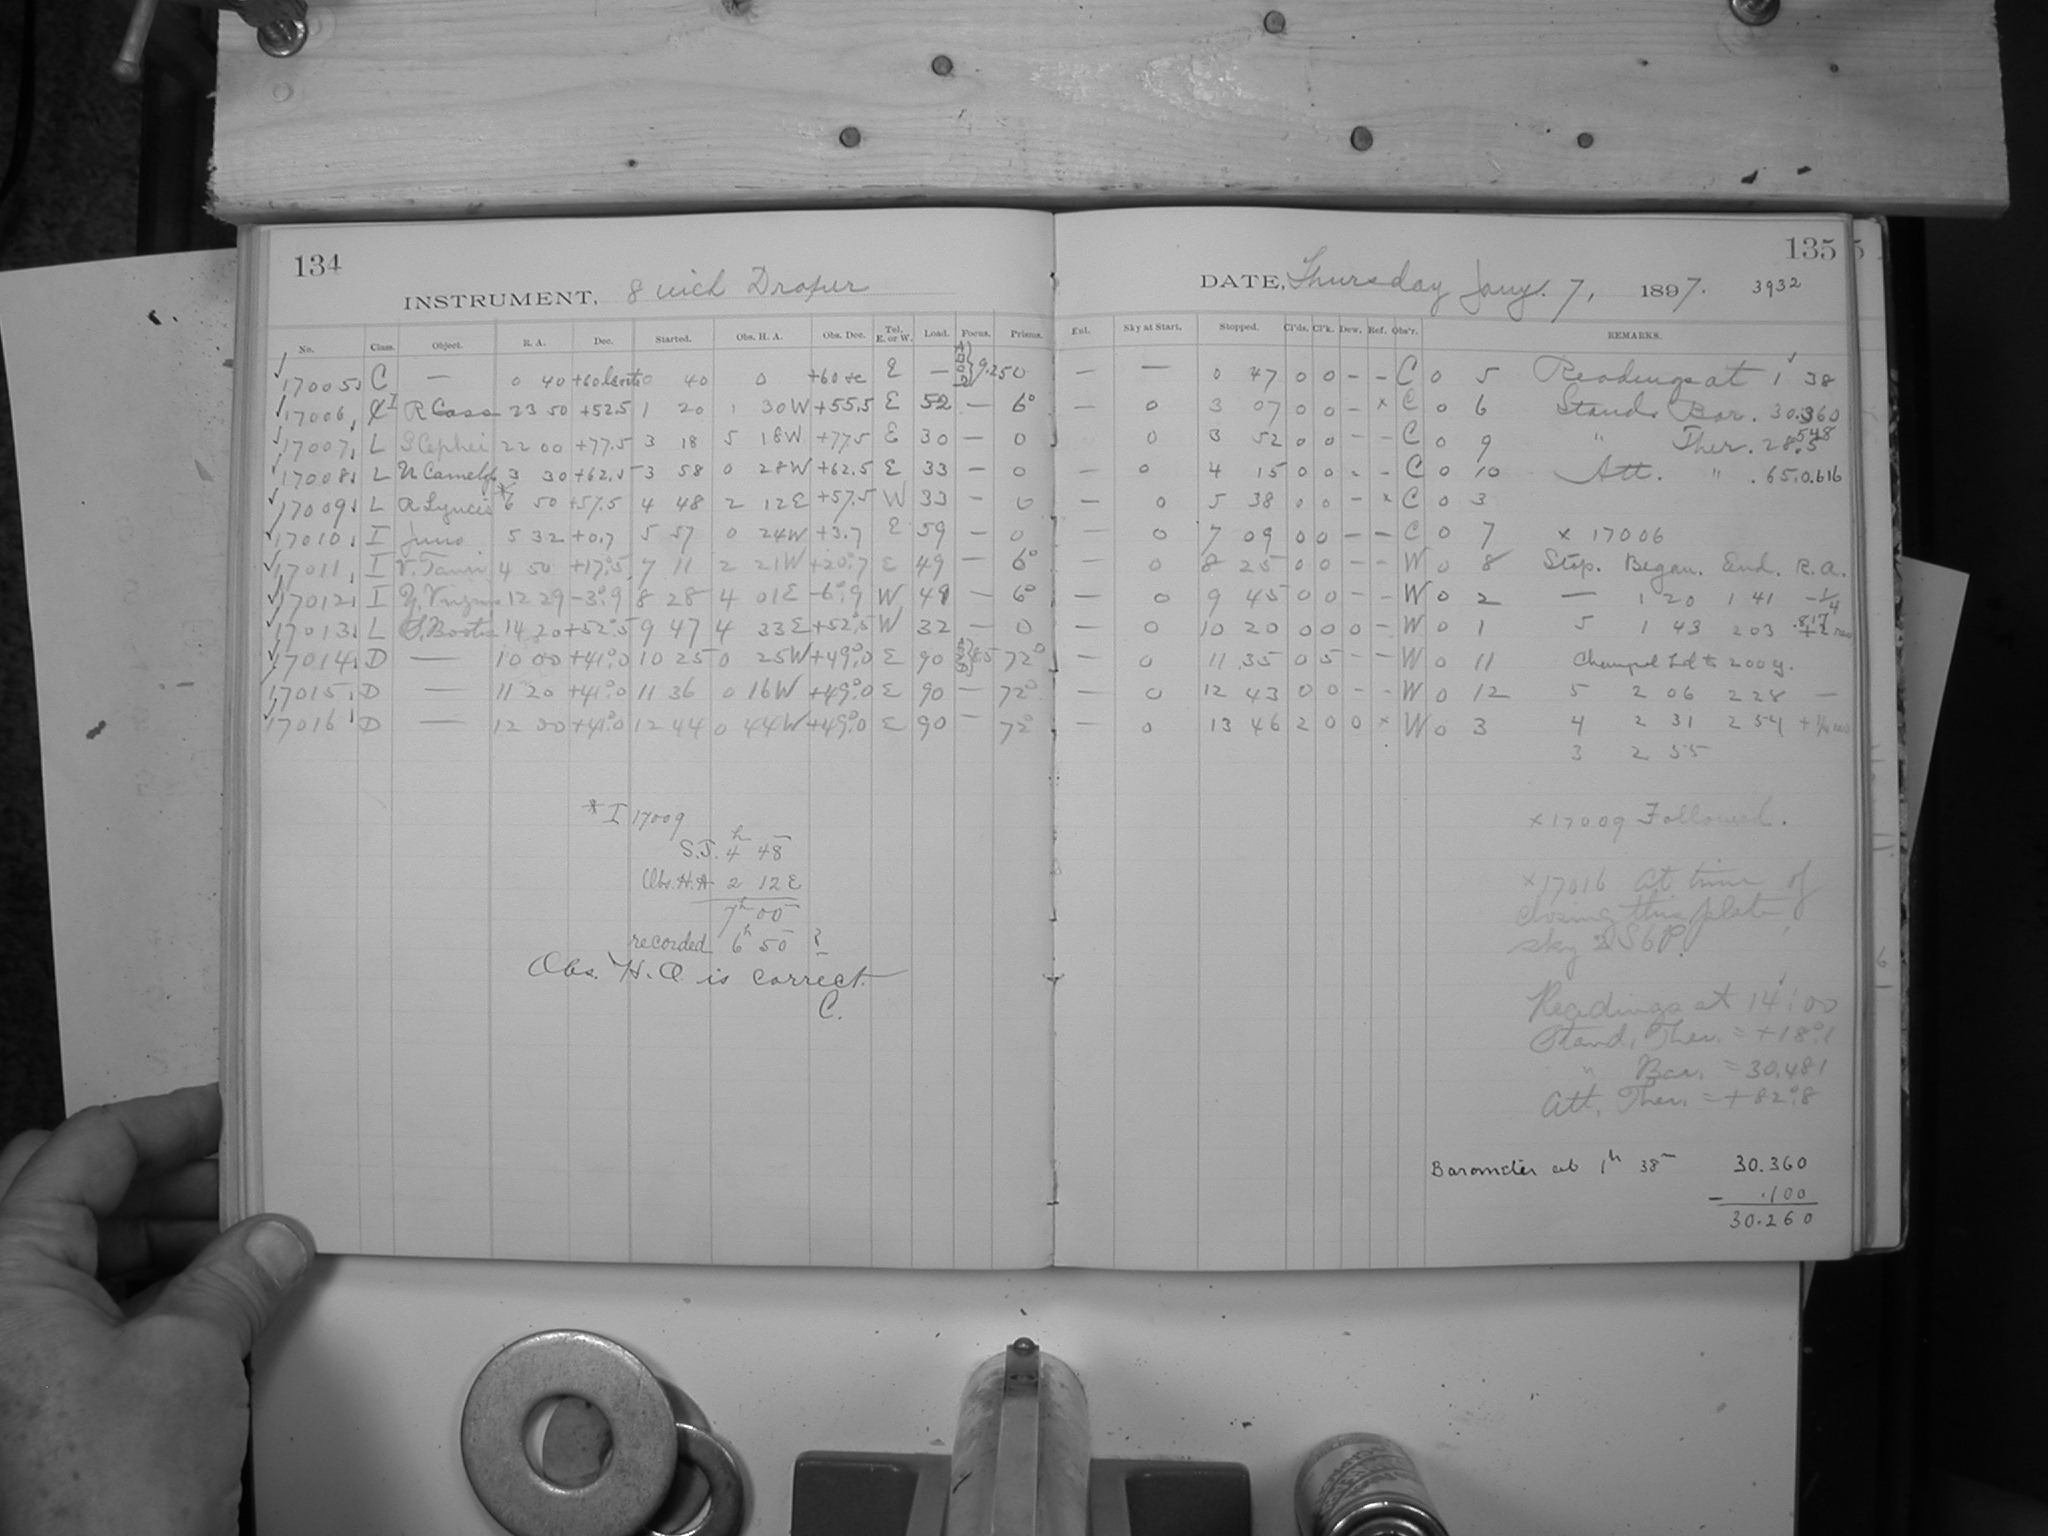 134
INSTRUMENT, 8 inch Draper
No. Class. Object. R. A. Dec. Started. Obs. H. A. Obs. Dec. Tel. E. or W. Load. Focus. Prisms.
17005 C — 0 40 +60 0 40 0 +60 E — 9.250
17006 I R Cass 23 50 +52.5 1 20 1 30W +55.5 E 52 — 6°
17007 L S Cephei 22 00 +77.5 3 18 5 18W +77.5 E 30 — 0
17008 L U Camelop 3 30 +62.5 3 58 0 28W +62.5 E 33 — 0
17009 L R Lyncis *6 50 +57.5 4 48 2 12E +57.5 W 33 — 0
17010 I Juno 5 32 +0.7 5 57 0 24W +3.7 E 59 — 0
17011 I V. Tauri 4 50 +17°.5 7 11 2 21W +20°.7 E 49 — 6°
17012 I Y. Virginis 12 29 -3°.9 8 28 4 01E -6°.9 W 49 — 6°
17013 L S. Bootis 14 20 +52°.5 9 47 4 33E +52°.5 W 32 — 0
17014 D — 10 00 +41°.0 10 25 0 25W +49°.0 E 90 8.5 72°
17015 D — 11 20 +41°.0 11 36 0 16W +49°.0 E 90 — 72°
17016 D — 12 00 +41°.0 12 44 0 44W +49°.0 E 90 — 72°
* I 17009
S.T. 4h 48
Obs. H.A 2 12E
7h 00
recorded 6h 50 ?
Obs. H.A. is correct.
C.
135
DATE, Thursday Jany. 7, 1897. 3932
Ext. Sky at Start. Stopped. Cl'ds. Cl'k. Dew. Ref. Obs'r. REMARKS.
— — 0 47 0 0 - - C 0 5 Readings at 1 38
— 0 3 07 0 0 - x C 0 6 Stand. Bar. 30.360
0 3 52 0 0 - - C 0 9 " Ther. 28.5 548
— 0 4 15 0 0 - - C 0 10 Att. " . 65.0 .616
— 0 5 38 0 0 - x C 0 3
— 0 7 09 0 0 - - C 0 7 x 17006
— 0 8 25 0 0 - - W 0 8 Stop. Began. End. R.A.
— 0 9 45 0 0 - - W 0 2 — 1 20 1 41 -1/4
— 0 10 20 0 0 0 - W 0 1 5 1 43 2 03 .817
— 0 11 35 0 5 - - W 0 11 Changed Ld to 200 g.
— 0 12 43 0 0 - - W 0 12 5 2 06 2 28 —
— 0 13 46 2 0 0 x W 0 3 4 2 31 2 54
3 2 55
x 17009 Followed.
x 17016 At time of
closing this plate
sky is S6P.
Readings at 14:00
Stand. Ther. = +18°.1
" Bar. = 30.481
Att. Ther. = +82°.8
Barometer at 1h 38m 30.360
- .100
30.260